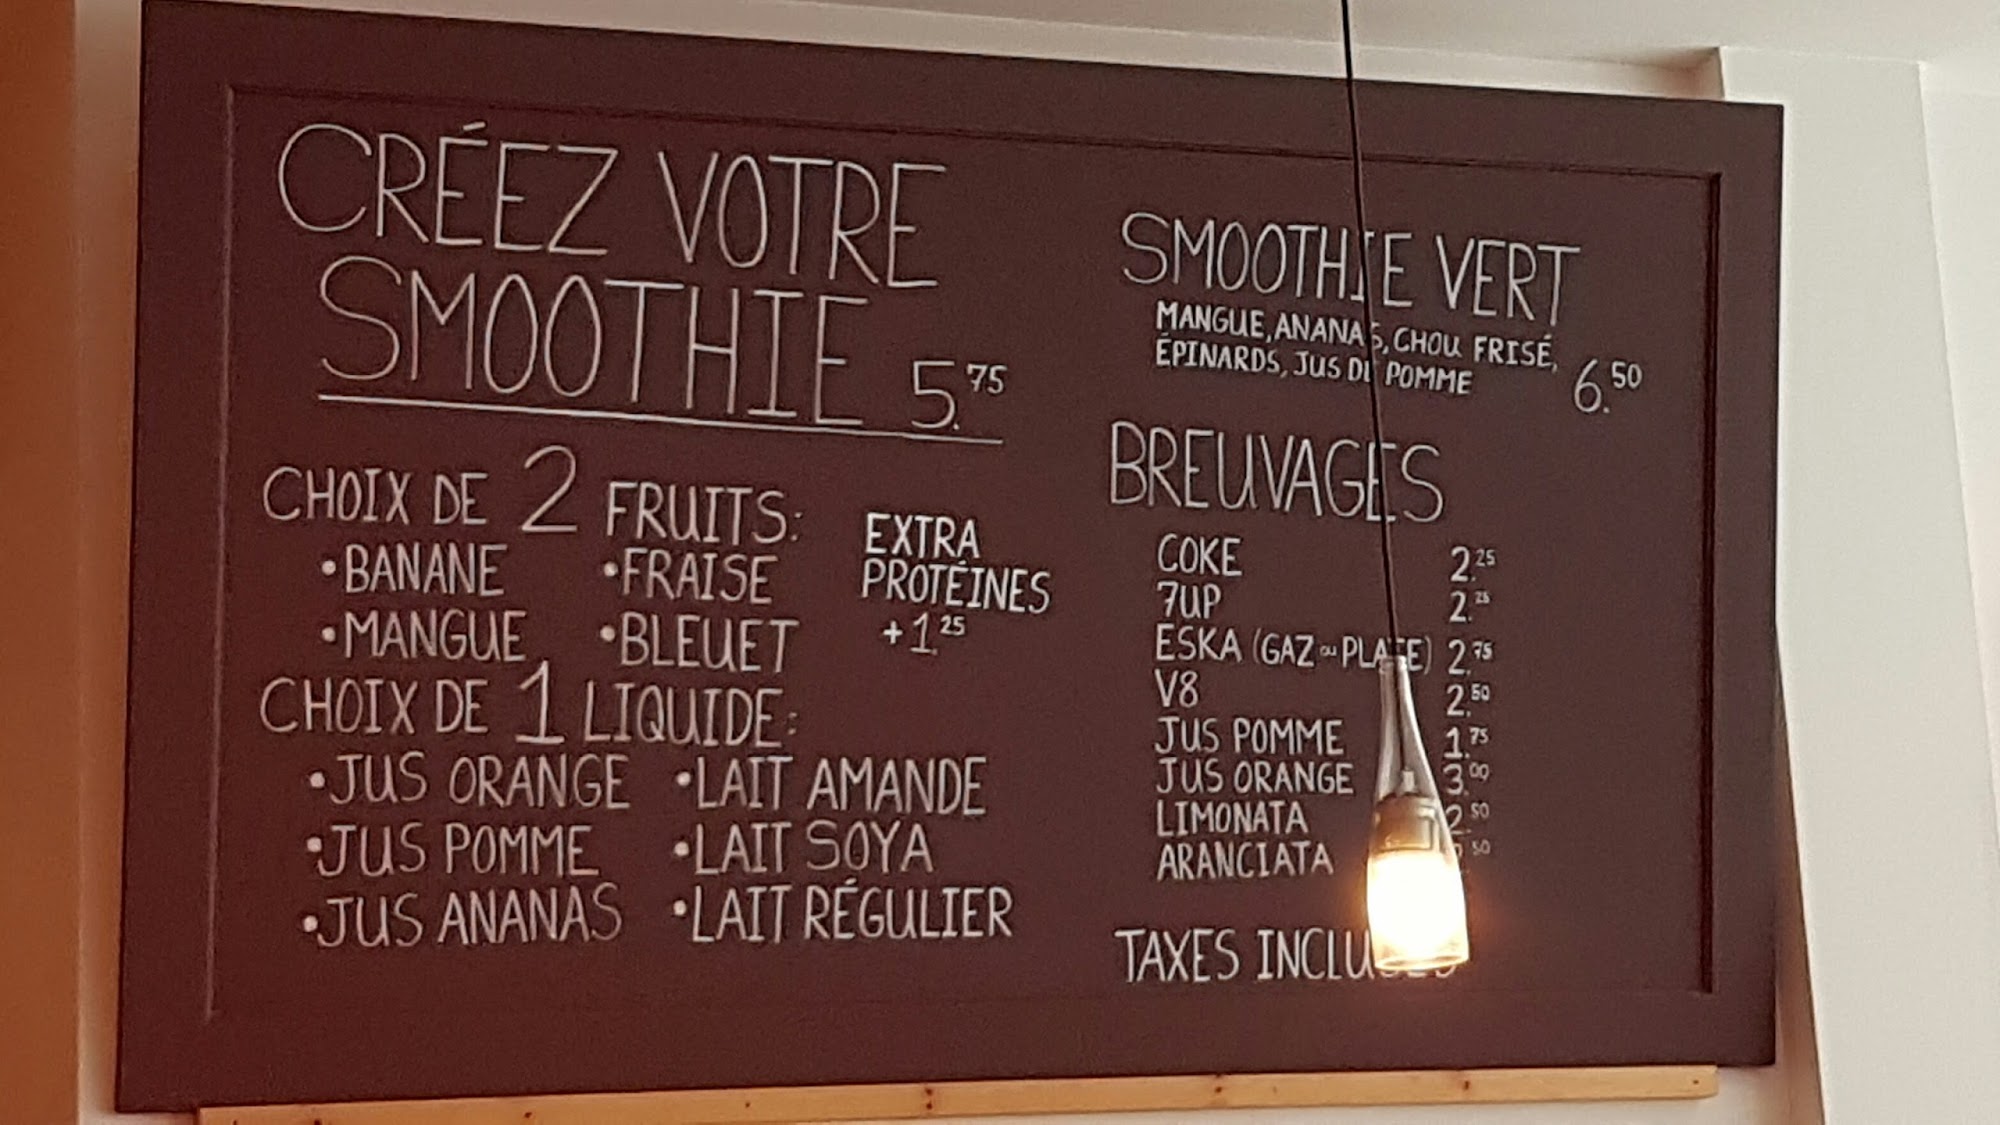 CRÉEZ VOTRE
SMOOTHIE 5.75
CHOIX DE 2 FRUITS:
•BANANE •FRAISE
•MANGUE •BLEUET
EXTRA
PROTÉINES
+1.25
CHOIX DE 1 LIQUIDE:
•JUS ORANGE •LAIT AMANDE
•JUS POMME •LAIT SOYA
•JUS ANANAS •LAIT RÉGULIER
SMOOTHIE VERT
MANGUE, ANANAS, CHOU FRISÉ,
ÉPINARDS, JUS DE POMME 6.50
BREUVAGES
COKE 2.25
7UP 2.25
ESKA (GAZ ou PLATE) 2.75
V8 2.50
JUS POMME 1.75
JUS ORANGE 3.00
LIMONATA 2.50
ARANCIATA
TAXES INCLUSES